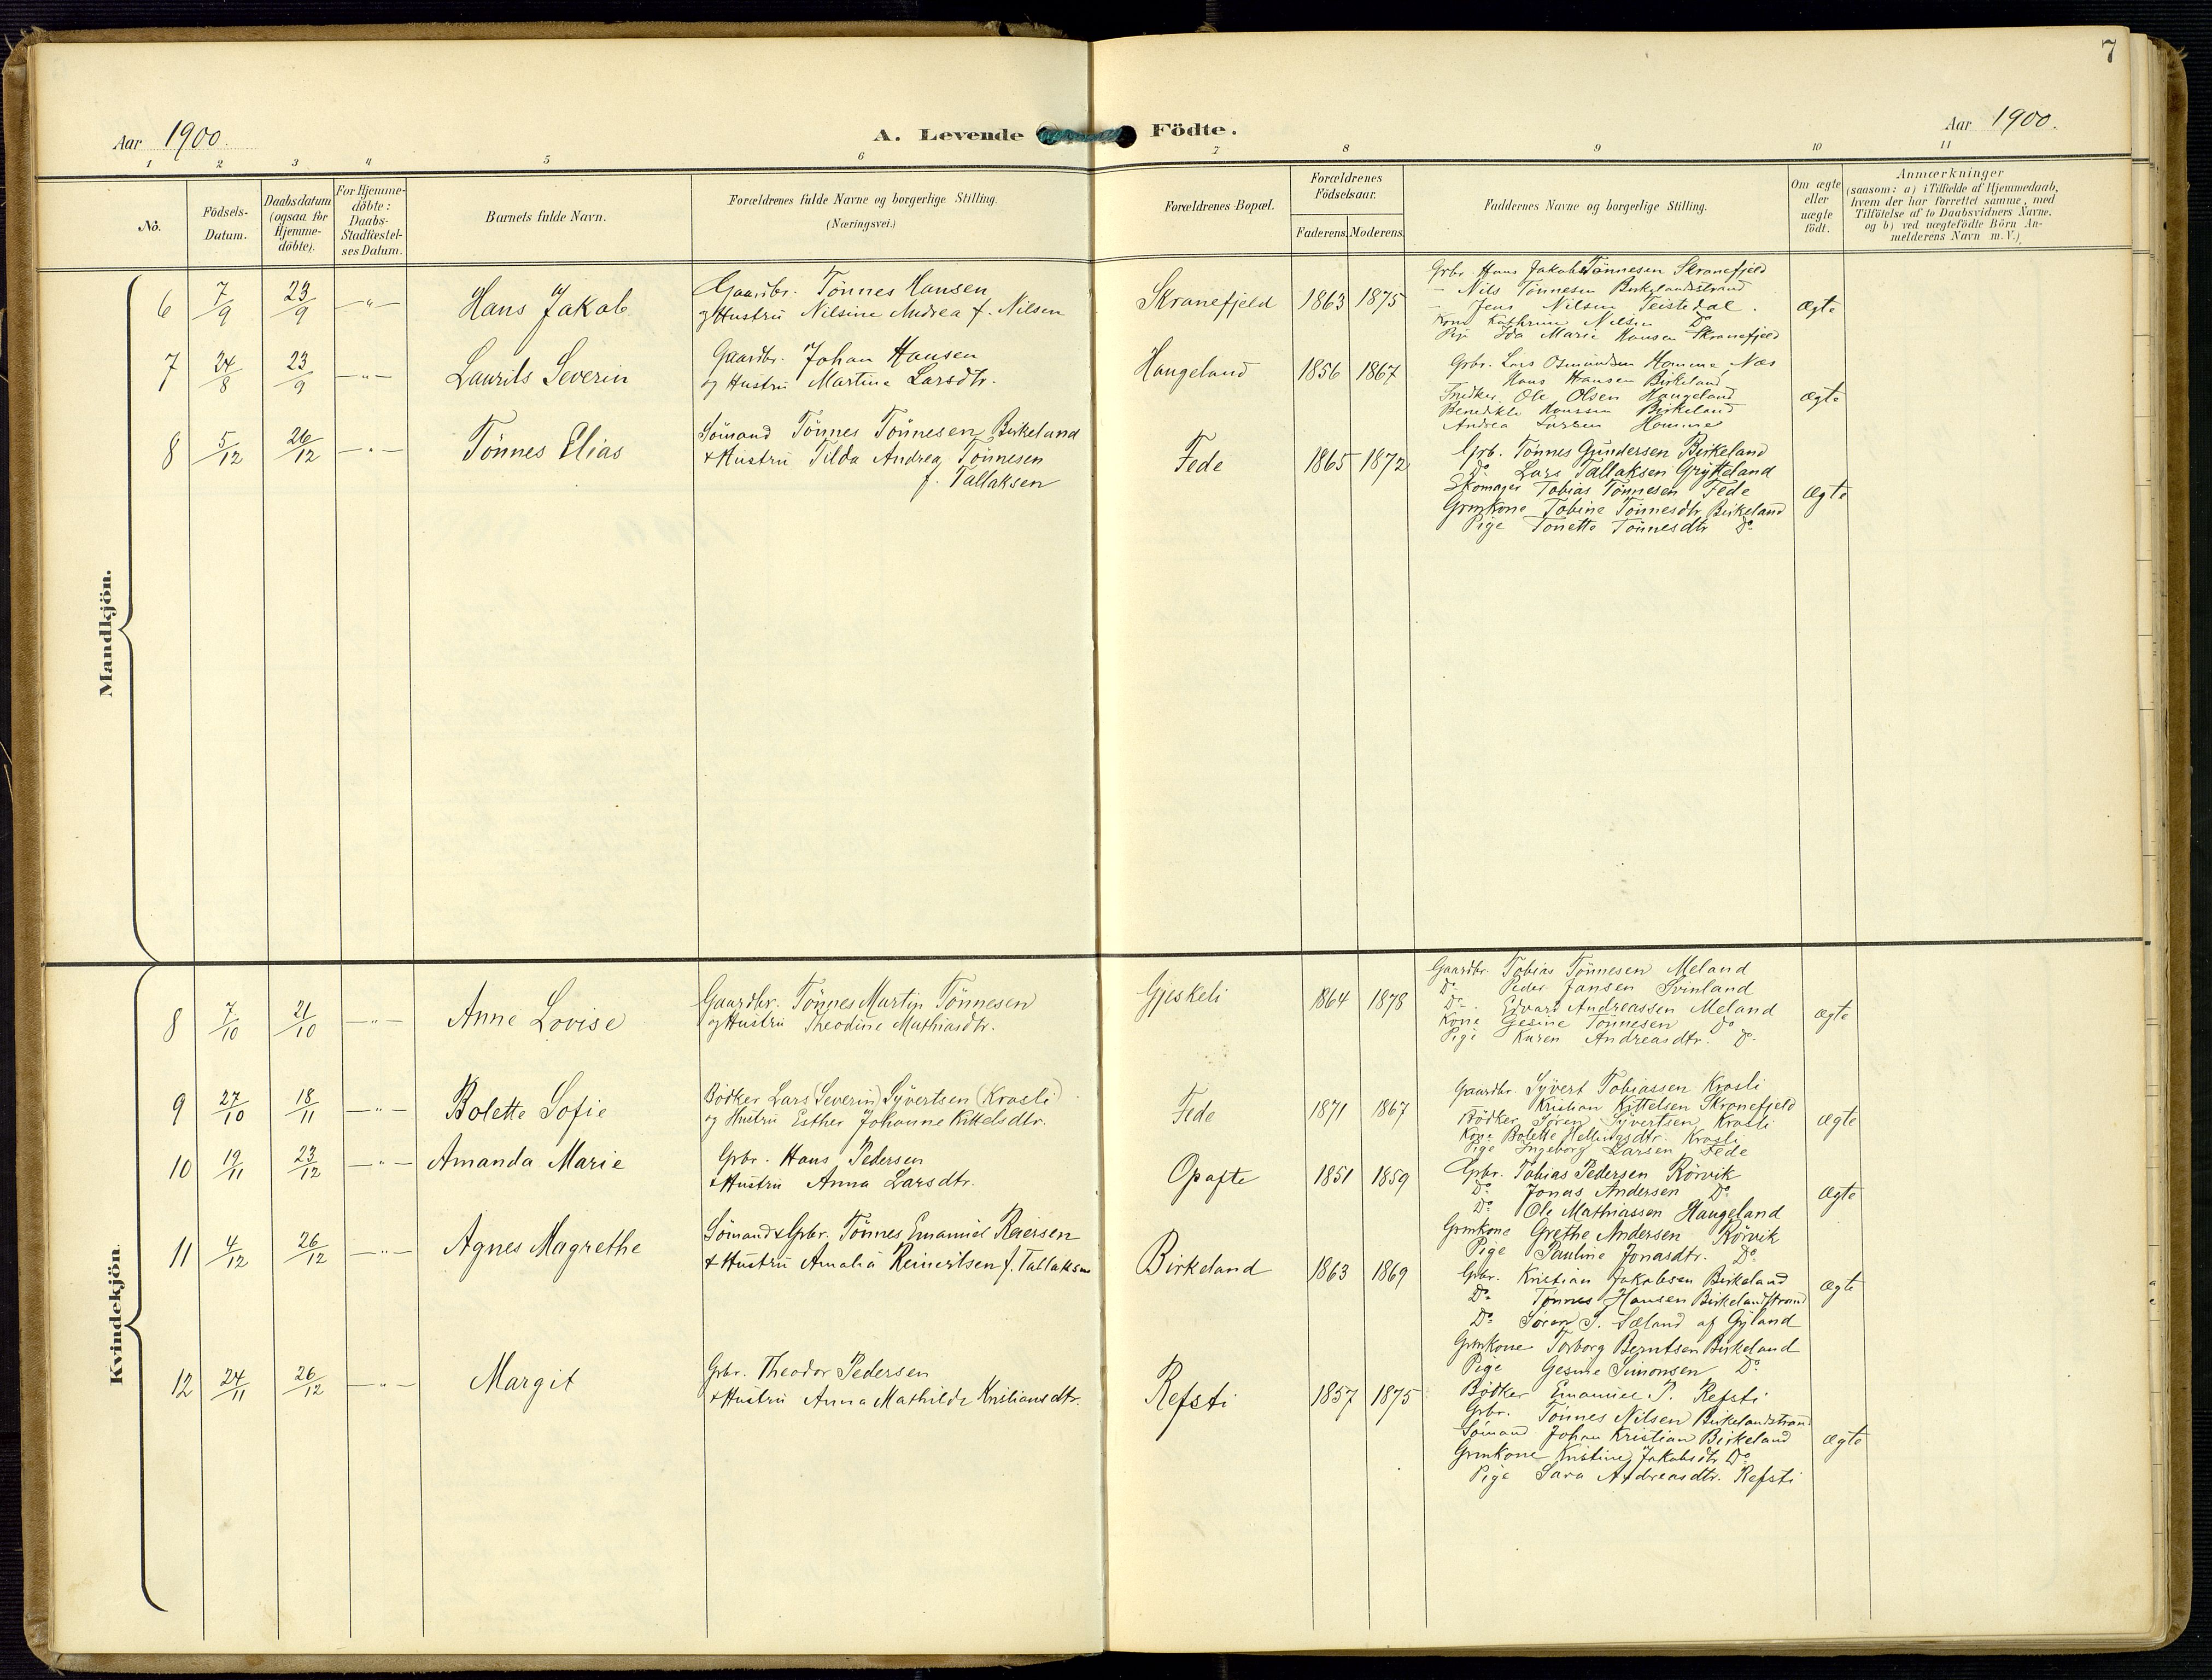 7
Aar 1900.
A. Levende Födte.
Aar 1900.
1 2 3 4 5 6 7 8 9 10 11
No.
Födsels-Datum.
Daabsdatum (ogsaa for Hjemme-döbte).
For Hjemme-döbte: Daabs-Stadfæstel-ses Datum.
Barnets fulde Navn.
Forældrenes fulde Navne og borgerlige Stilling.
(Næringsvei.)
Forældrenes Bopæl.
Forældrenes Födselsaar.
Faderens. Moderens.
Faddernes Navne og borgerlige Stilling.
Om ægte eller uægte födt.
Anmærkninger
(saasom: a) i Tilfælde af Hjemmedaab,
hvem der har forrettet samme, med
Tilföielse af to Daabsvidners Navne.
og b) ved uægtefödte Börn An-
melderens Navn m. V.)
Mandkjön.
6 7/9 23/9 —"— Hans Jakob
Gaardbr. Tönnes Hansen
og Hustru Nilsine Andrea f. Nilsen
Skranefjeld 1863 1875
Grbr. Hans Jakob Tönnesen Skranefjeld
— Nils Tönnesen Birkelandsstrand
— Jens Nilsen Teistedal.
Kone Kathrine Nilsen Do
Pige Ida Marie Hansen Skranefjeld
Ægte
7 24/8 23/9 —"— Laurits Severin
Gaardbr. Johan Hansen
og Hustru Martine Larsdtr.
Haugeland 1856 1867
Grbr. Lars Osmundsen Homme, Næs
Hans Hansen Birkeland
Snedker Ole Olsen Haugeland
Benedikte Hanssen Birkeland
Andrea Larsen Homme
Ægte
8 5/12 26/12 —"— Tönnes Elias
Sömand Tönnes Tönnesen Birkeland
& Hustru Tilda Andrea Tönnesen
f. Tallaksen
Fede 1865 1872
Grb. Tönnes Gundersen Birkeland
Do Lars Tallaksen Grytteland
Skomager Tobias Tönnesen Fede
Grmkone Tobine Tönnesdtr. Birkeland
Pige Tonette Tönnesdtr Do
Ægte
Kvindekjön.
8 7/10 21/10 —"— Anne Lovise
Gaardbr. Tönnes Martin Tönnesen
og Hustru Theodine Mathiasdtr.
Gjeskeli 1864 1878
Gaardbr. Tobias Tönnesen Meland
Do Peder Jansen Svinland
Do Edvard Andreassen Meland
Kone Gesine Tönnesen Do
Pige Karen Andreasdtr. Do
Ægte
9 27/10 18/11 —"— Bolette Sofie
Bödker Lars (Severin) Syvertsen (Krosli)
og Hustru Esther Johanne Kittelsdtr.
Fede 1871 1867
Gaardbr. Syvert Tobiassen Krosli
Kristian Kittelsen Skranefjeld
Bödker Sören Syvertsen Krosli
Kone Bolette Krosli
Pige Ingeborg Larsen Fede
Ægte
10 19/11 23/12 —"— Amanda Marie
Grbr. Hans Pedersen
& Hustru Anna Larsdtr.
Opofte 1851 1859
Grbr. Tobias Pedersen Rörvik
Do Jonas Andersen Do
Do Ole Mathiassen Haugeland
Grmkone Grethe Andersen Rörvik
Pige Pauline Jonasdtr. Do
Ægte
11 4/12 26/12 —"— Agnes Magrethe
Sömand & Grbr. Tönnes Emanuel Reiersen
& Hustru Amalia Reinertsen f. Tallaksen
Birkeland 1863 1869
Grbr. Kristian Jakobsen Birkeland
Do Tönnes Hansen Birkelandstrand
Do Sören S. Sæland af Gyland
Grmkone Torborg Berntsen Birkeland
Pige Gesine Simonsen Do
Ægte
12 24/11 26/12 —"— Margit
Grbr. Theodor Pedersen
& Hustru Anna Mathilde Kristiansdtr.
Refsti 1857 1875
Bödker Emanuel P. Refsti
Grbr. Tönnes Nilsen Birkelandstrand
Sömand Johan Kristian Birkeland
Grmkone Kristine Jakobsdtr Do
Pige Sara Andreasdtr. Refsti
Ægte